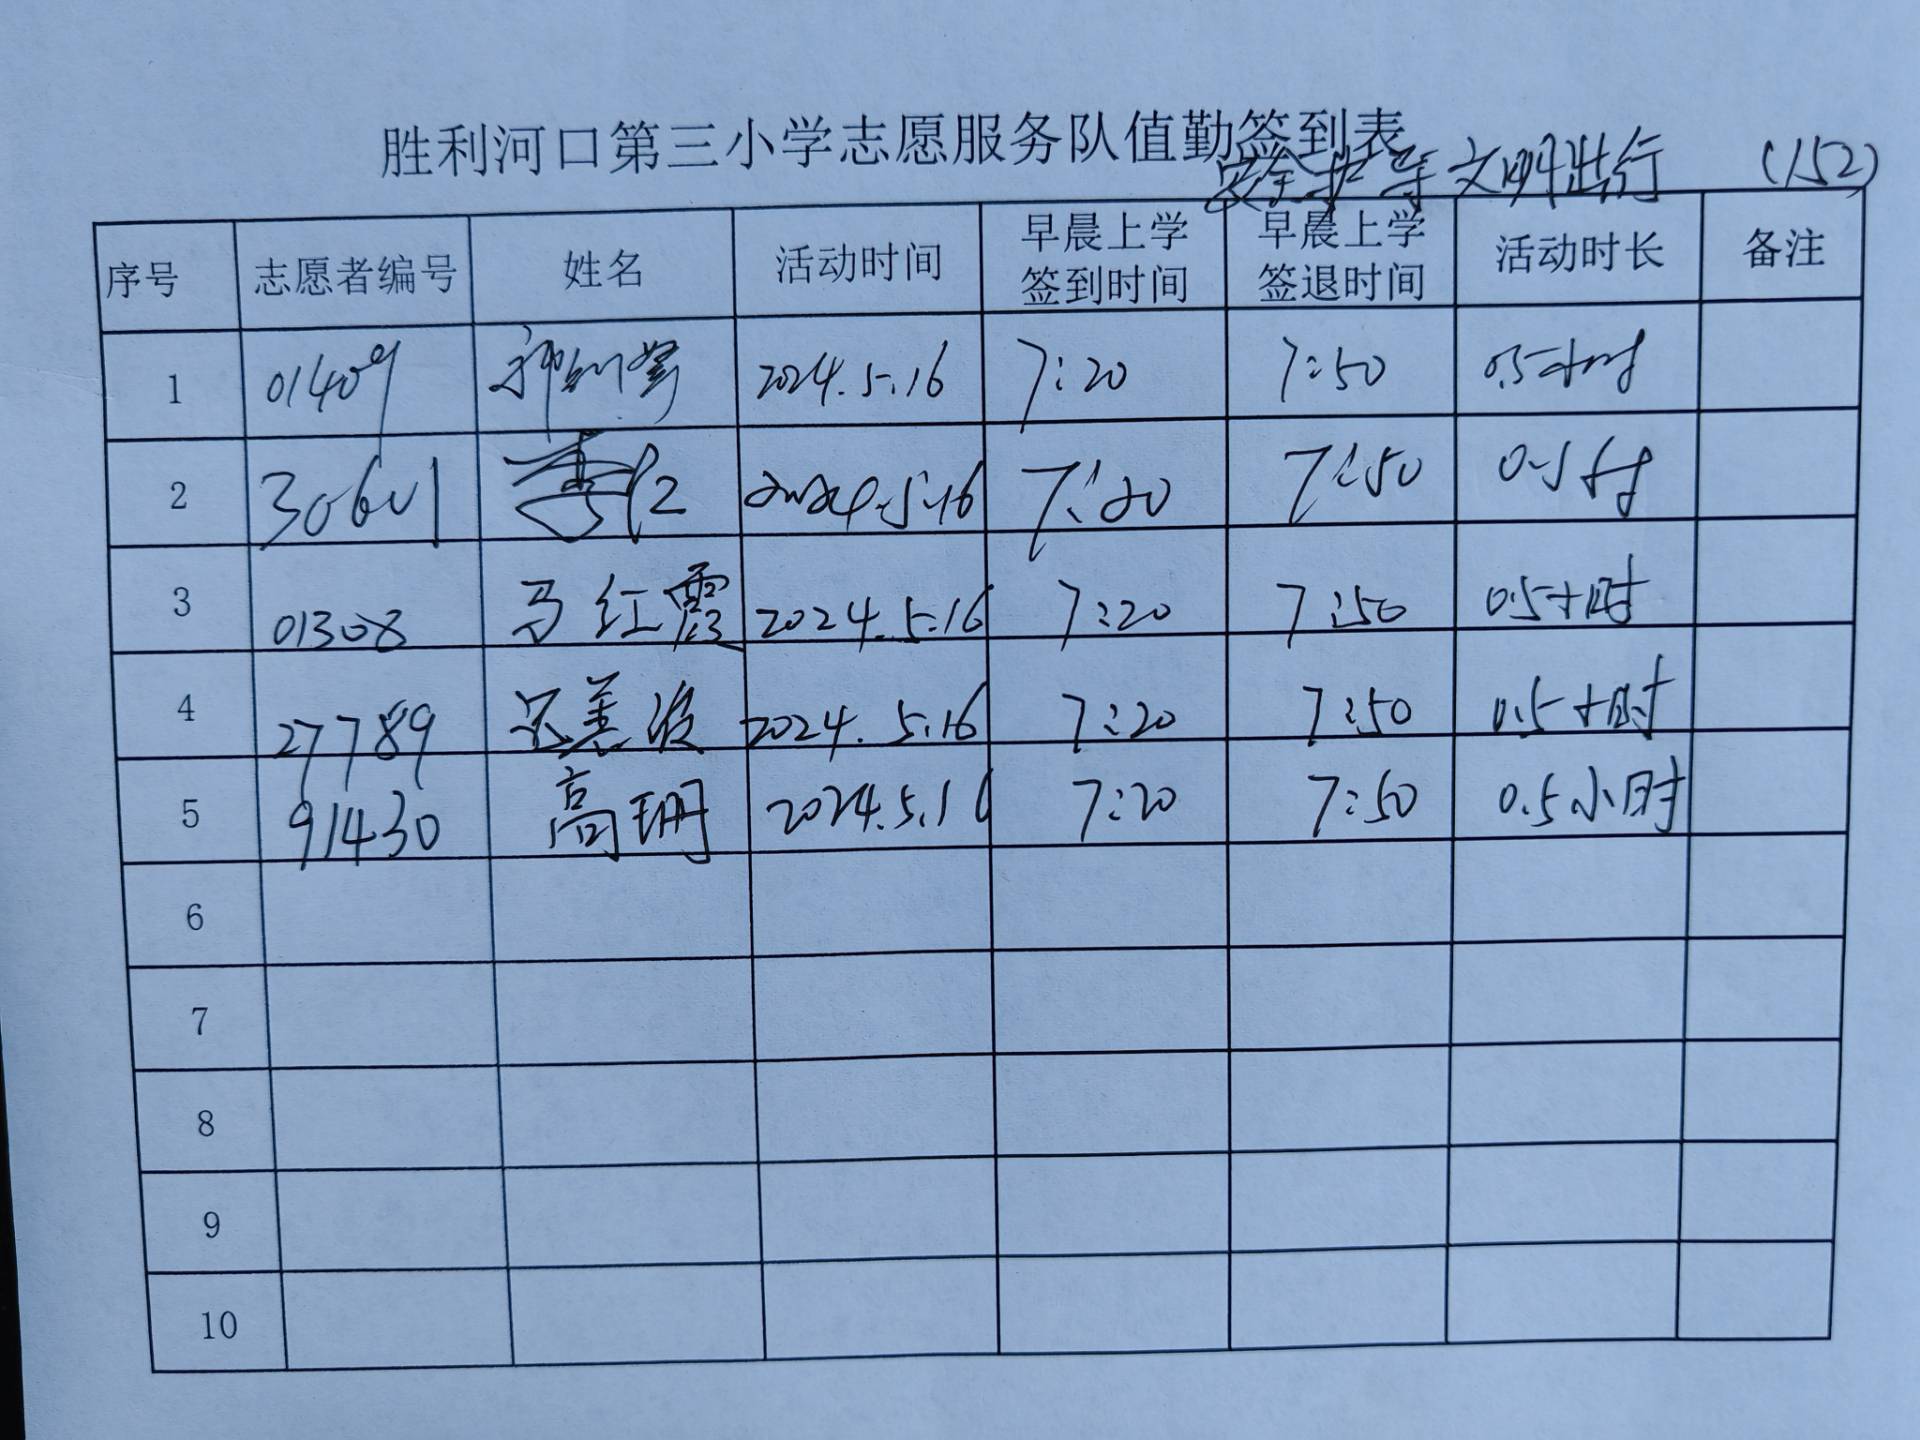 胜利河口第三小学志愿服务队值勤签到表
安全护学 文明出行 (152)
序号 志愿者编号 姓名 活动时间 早晨上学签到时间 早晨上学签退时间 活动时长 备注
1 01409 2024.5.16 7:20 7:50 0.5小时
2 2024.5.16 7:20 7:50 0.5小时
3 01308 马红霞 2024.5.16 7:20 7:50 0.5小时
4 27789 2024.5.16 7:20 7:50 0.5小时
5 91430 高珊 2024.5.16 7:20 7:50 0.5小时
6
7
8
9
10